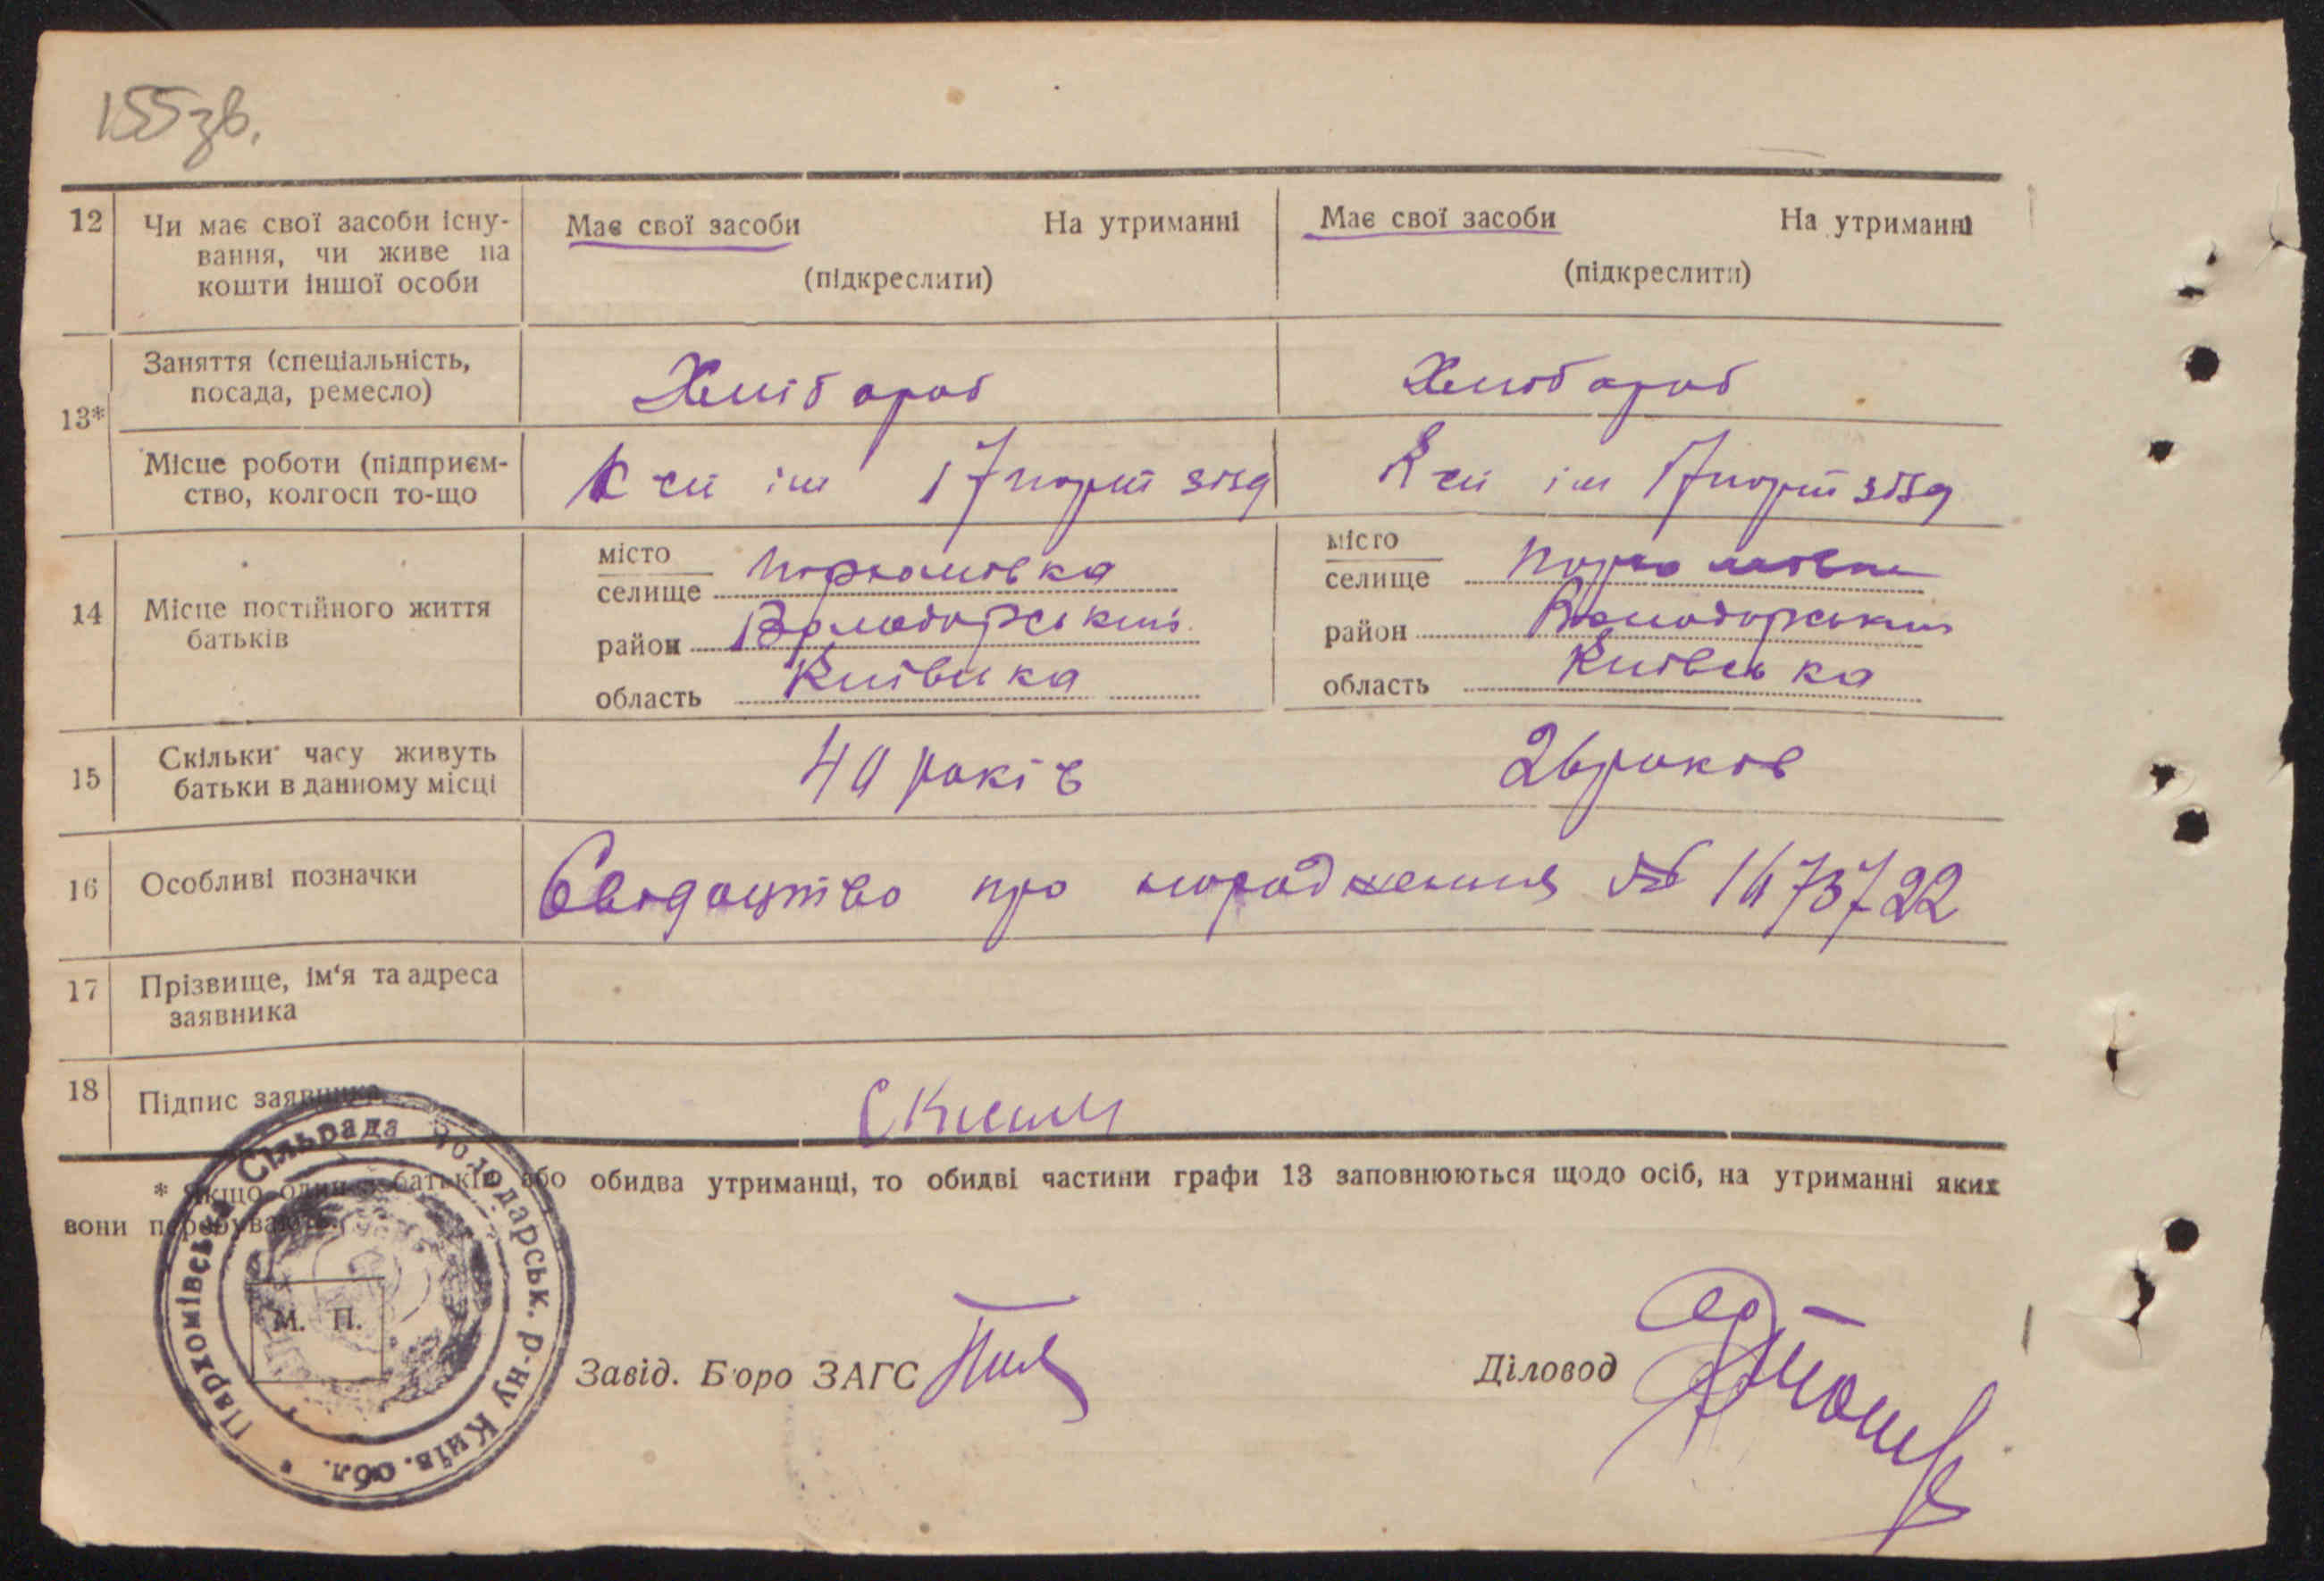 155 зв.
12 Чи має свої засоби існу- Має свої засоби На утриманні Має свої засоби На утриманні
вання, чи живе на
кошти іншої особи (підкреслити) (підкреслити)
13* Заняття (спеціальність, Хлібороб Хлібороб
посада, ремесло)
Місце роботи (підприєм- К-сп ім 17 порт зізд К-сп ім 17 порт зізд
ство, колгосп то-що
14 Місце постійного життя
батьків
місто
селище Пархомівка
район Володарський
область Київська
місто
селище Пархомівка
район Володарський
область Київська
15 Скільки часу живуть 40 років 26 років
батьки в данному місці
16 Особливі позначки Свідоцтво про народження №
17 Прізвище, ім'я та адреса
заявника
18 Підпис заявника
* Якщо один з батьків або обидва утриманці, то обидві частини графи 13 заповнюються щодо осіб, на утриманні яких
вони перебувають.
Пархомівська Сільрада Володарськ. р-ну Київ. обл.
М. П.
Завід. Бюро ЗАГС
Діловод